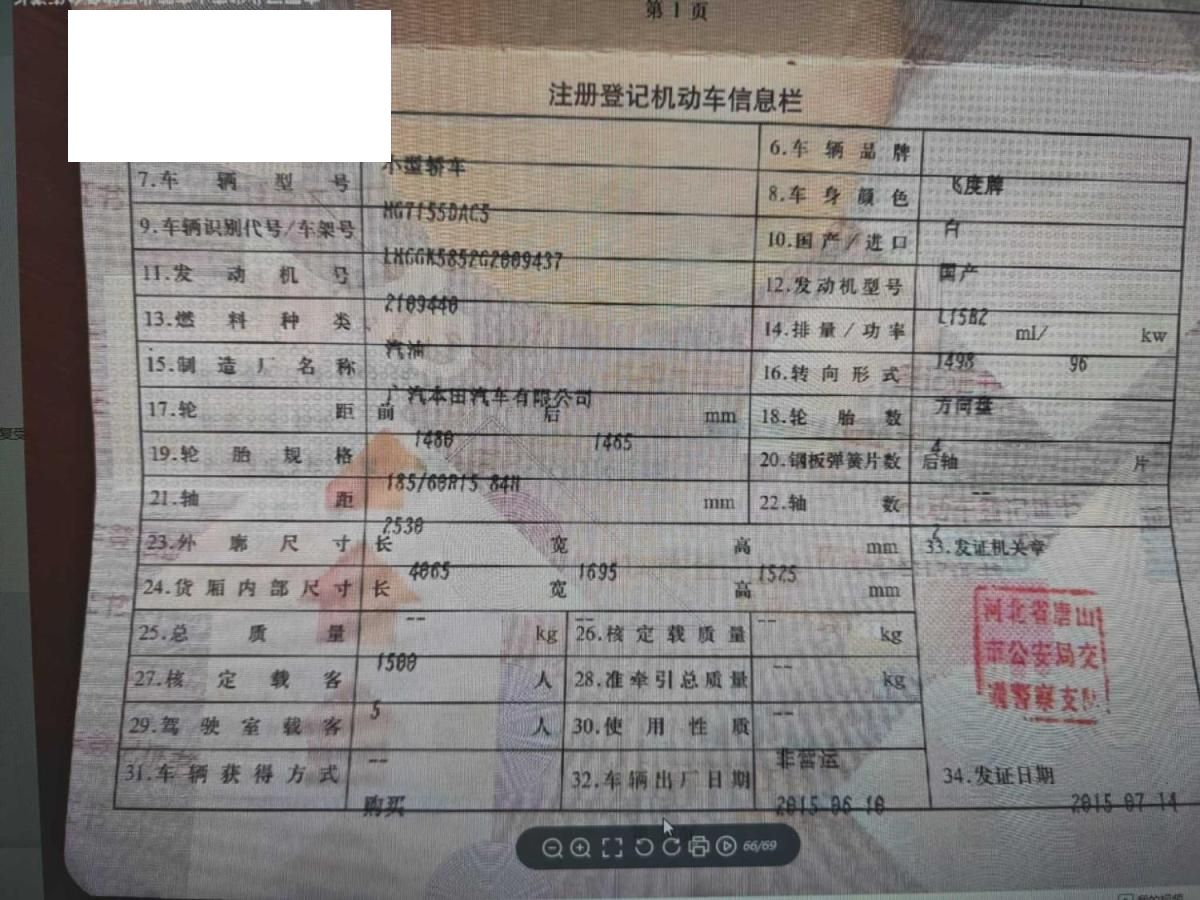 第 1 页
注册登记机动车信息栏
小型轿车
6.车辆品牌 飞度牌
7.车辆型号 HG7155DAC5
8.车身颜色 白
9.车辆识别代号/车架号 LHGGK5852G2009437
10.国产/进口 国产
11.发动机号 2109440
12.发动机型号 L15B2
13.燃料种类 汽油
14.排量/功率 1498 ml/ 96 kw
15.制造厂名称 广汽本田汽车有限公司
16.转向形式 方向盘
17.轮距 前 1480 后 1465 mm
18.轮胎数 4
19.轮胎规格 185/60R15 84H
20.钢板弹簧片数 后轴 -- 片
21.轴距 2530 mm
22.轴数 2
23.外廓尺寸 长 4065 宽 1695 高 1525 mm
33.发证机关章
24.货厢内部尺寸 长 -- 宽 -- 高 -- mm
25.总质量 1500 kg
26.核定载质量 -- kg
河北省唐山
市公安局交
通警察支队
27.核定载客 5 人
28.准牵引总质量 -- kg
29.驾驶室载客 -- 人
30.使用性质 非营运
31.车辆获得方式 购买
32.车辆出厂日期 2015-06-10
34.发证日期 2015-07-14
66/69